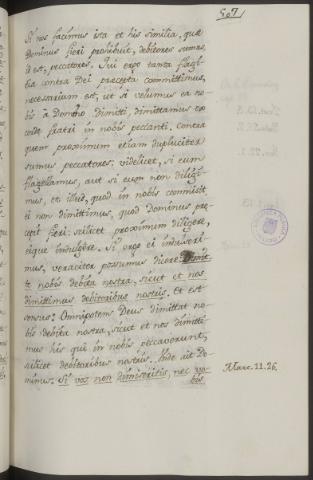 507
Si nos facimus ista et his similia, quæ
Dominus fieri prohibuit, debitores sumus,
id est, peccatores. Qui ergo tanta flagi-
tia contra Dei præcepta committimus,
necessarium est, ut si volumus ea no-
bis a Domino dimitti, dimittamus et
fratri in nobis peccanti, contra
quem proximum etiam dupliciter
sumus peccatores: videlicet, si eum
flagellamus, aut si eum non diligi-
mus, et illud, quod in nobis commisit
ei non dimittimus, quod Dominus præ-
cepit fieri: scilicet proximum diligere,
eique indulgere. Si ergo ei indulseri-
mus, veraciter possumus dicere: Dimit-
te nobis debita nostra, sicut et nos
dimittimus debitoribus nostris. Et est
sensus: Omnipotens Deus dimittat no-
bis debita nostra, sicut et nos dimitti-
mus his qui in nobis peccaverunt,
scilicet debitoribus nostris. Unde ait Do-
minus: Si vos non dimiseritis, nec vo-
bis
Marc. 11. 26.